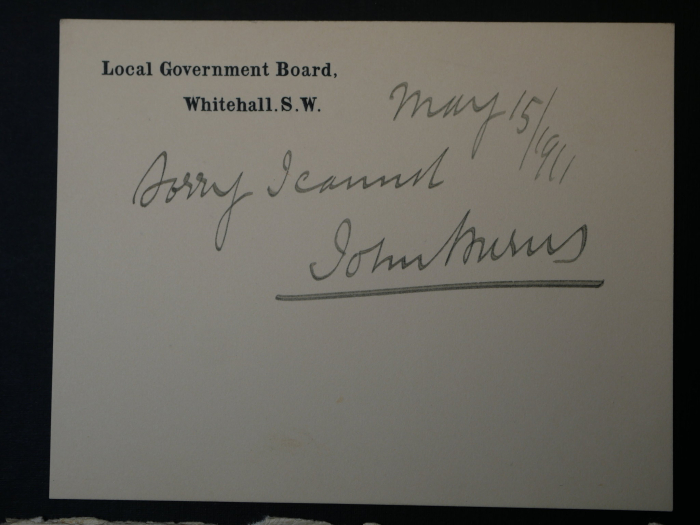 Local Government Board,
Whitehall.S.W.
May 15/1911
Sorry I cannot
John Burns